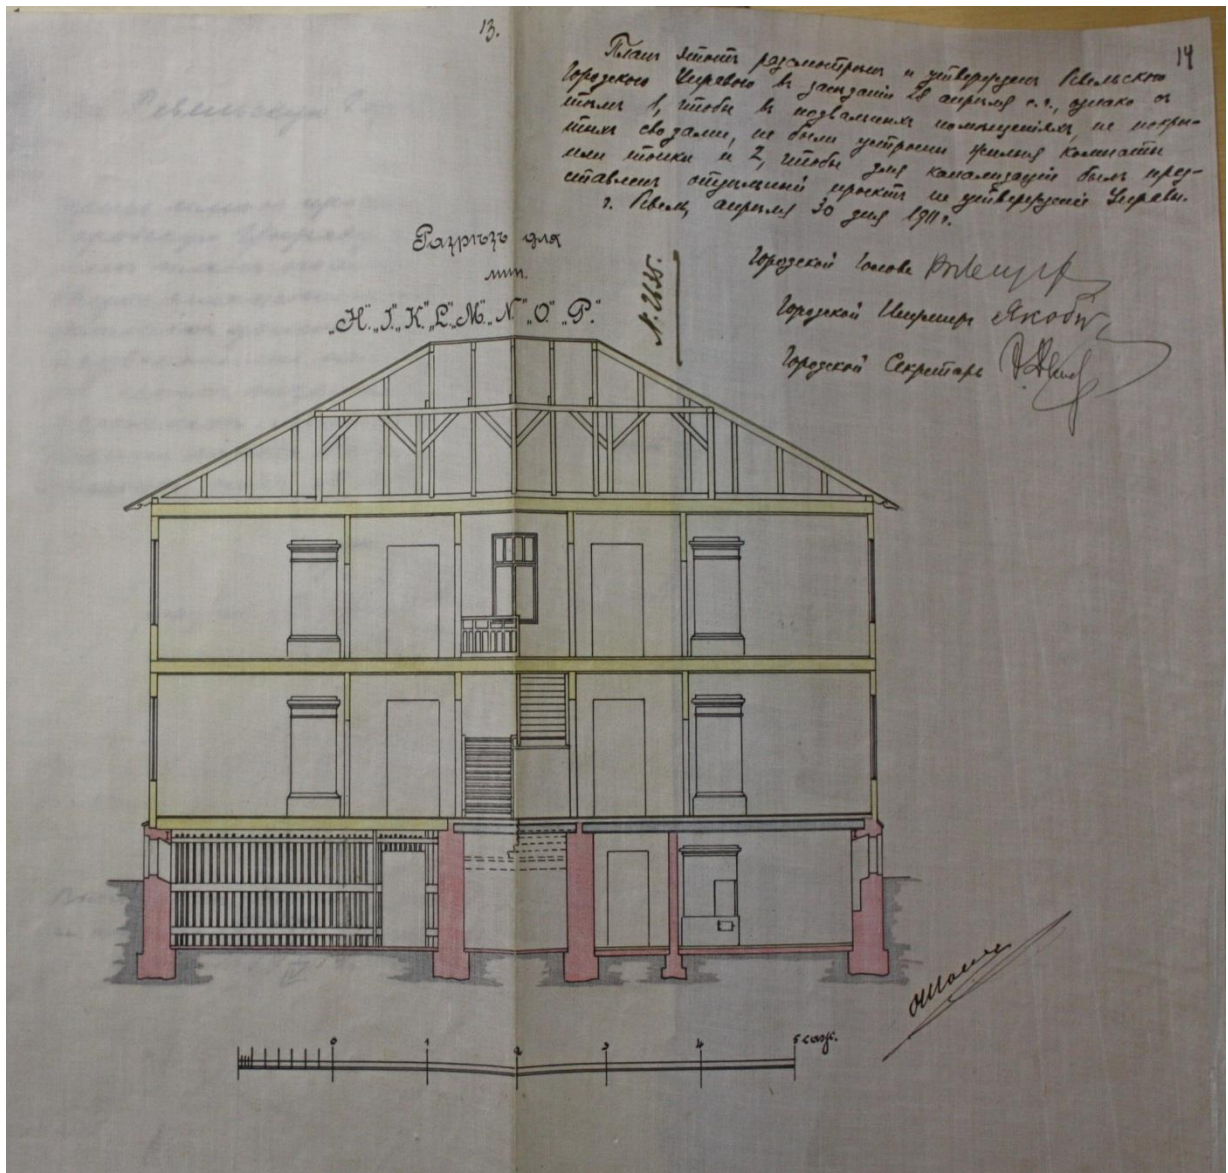 13.
14
Планъ этотъ разсмотрѣнъ и утвержденъ Ревельскою
Городскою Управою въ засѣданіи 28 апрѣля с.г., однако съ
тѣмъ 1, чтобы въ подвальныхъ помѣщеніяхъ, не покры-
тыхъ сводами, не были устроены жилыя комнаты
или топки и 2, чтобы для канализаціи былъ пред-
ставленъ отдѣльный проектъ на утвержденіе Управы.
г. Ревель, апрѣля 30 дня 1911 г.
Городской Голова
Городской Инженеръ Якоби
Городской Секретарь
Разрѣзъ для
лит.
„H.“ „J.“ „K.“ „L.“ „M.“ „N.“ „O.“ „P.“
0 1 2 3 4 5 саж.